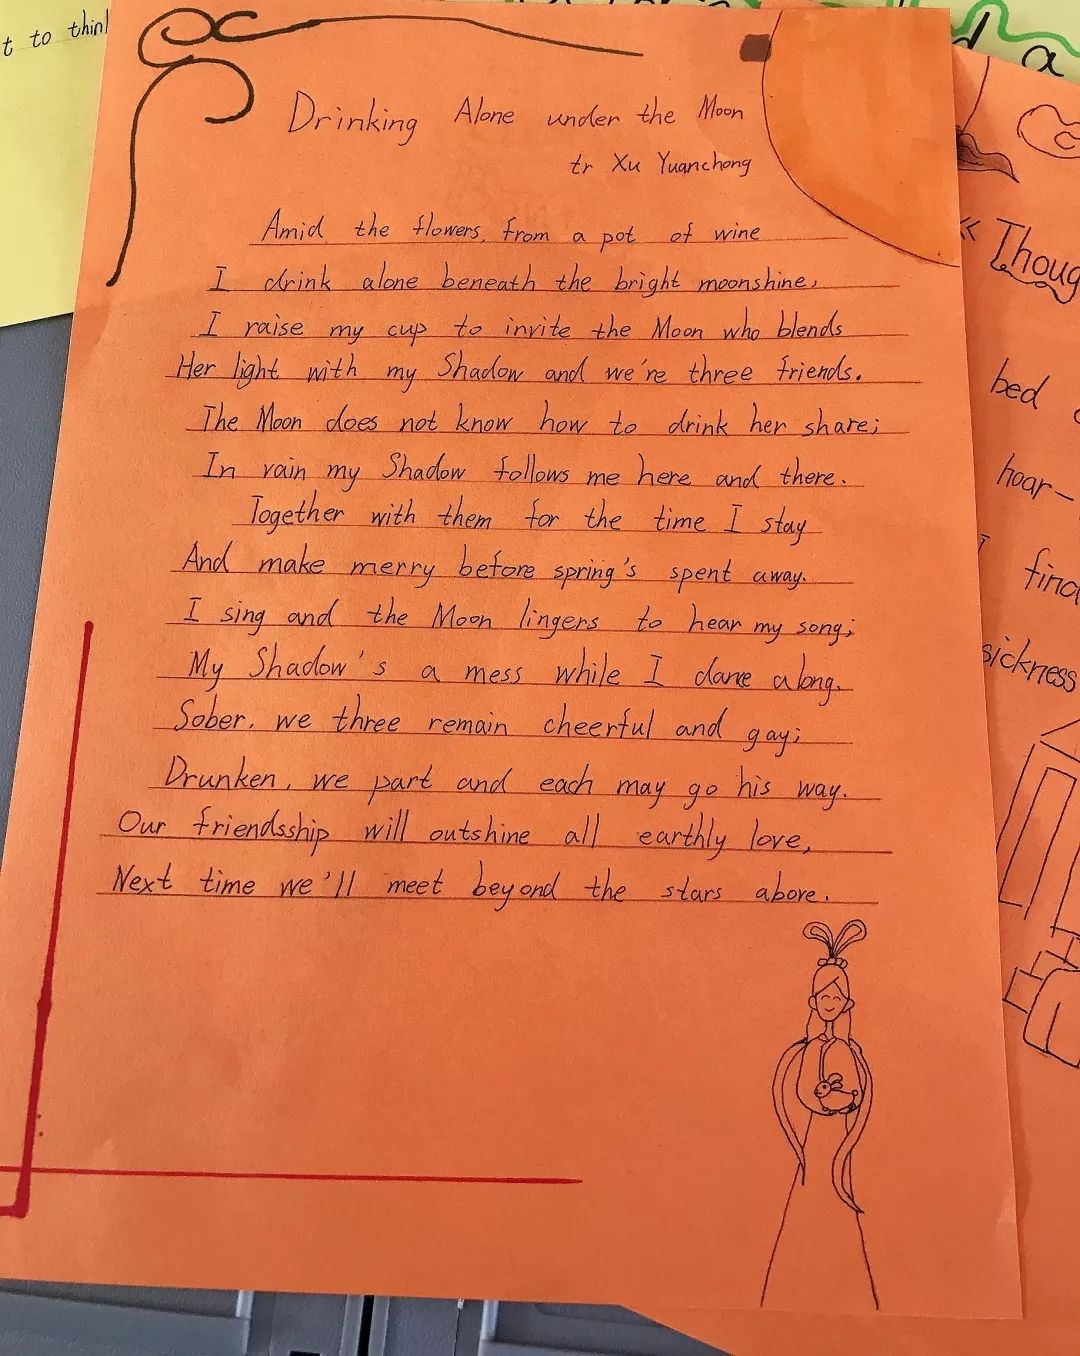 t to thin
Drinking Alone under the Moon
tr Xu Yuanchong
Amid the flowers, from a pot of wine
I drink alone beneath the bright moonshine,
I raise my cup to invite the Moon who blends
Her light with my Shadow and we're three friends.
The Moon does not know how to drink her share;
In vain my Shadow follows me here and there.
Together with them for the time I stay
And make merry before spring's spent away.
I sing and the Moon lingers to hear my song;
My Shadow's a mess while I dance along.
Sober, we three remain cheerful and gay;
Drunken, we part and each may go his way.
Our friendsship will outshine all earthly love,
Next time we'll meet beyond the stars above.
d a
«Thoug
bed
hoar-
I find
sickness